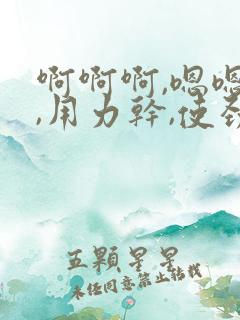 啊啊啊,嗯嗯
,用力幹,使
五顆星星
未经同意禁止转载